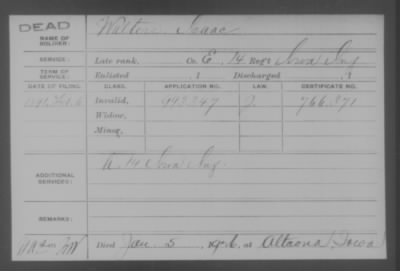 DEAD
NAME OF SOLDIER: Walton, Isaac
SERVICE: Late rank, Co. E, 14 Reg't Iowa Inf
TERM OF SERVICE: Enlisted , 1 Discharged , 1
DATE OF FILING. CLASS. APPLICATION NO. LAW. CERTIFICATE NO.
Invalid, 993247 766.371
Widow,
Minor,
ADDITIONAL SERVICES: 14 Iowa Inf.
REMARKS:
Died Jan. 5, at Altoona, Iowa